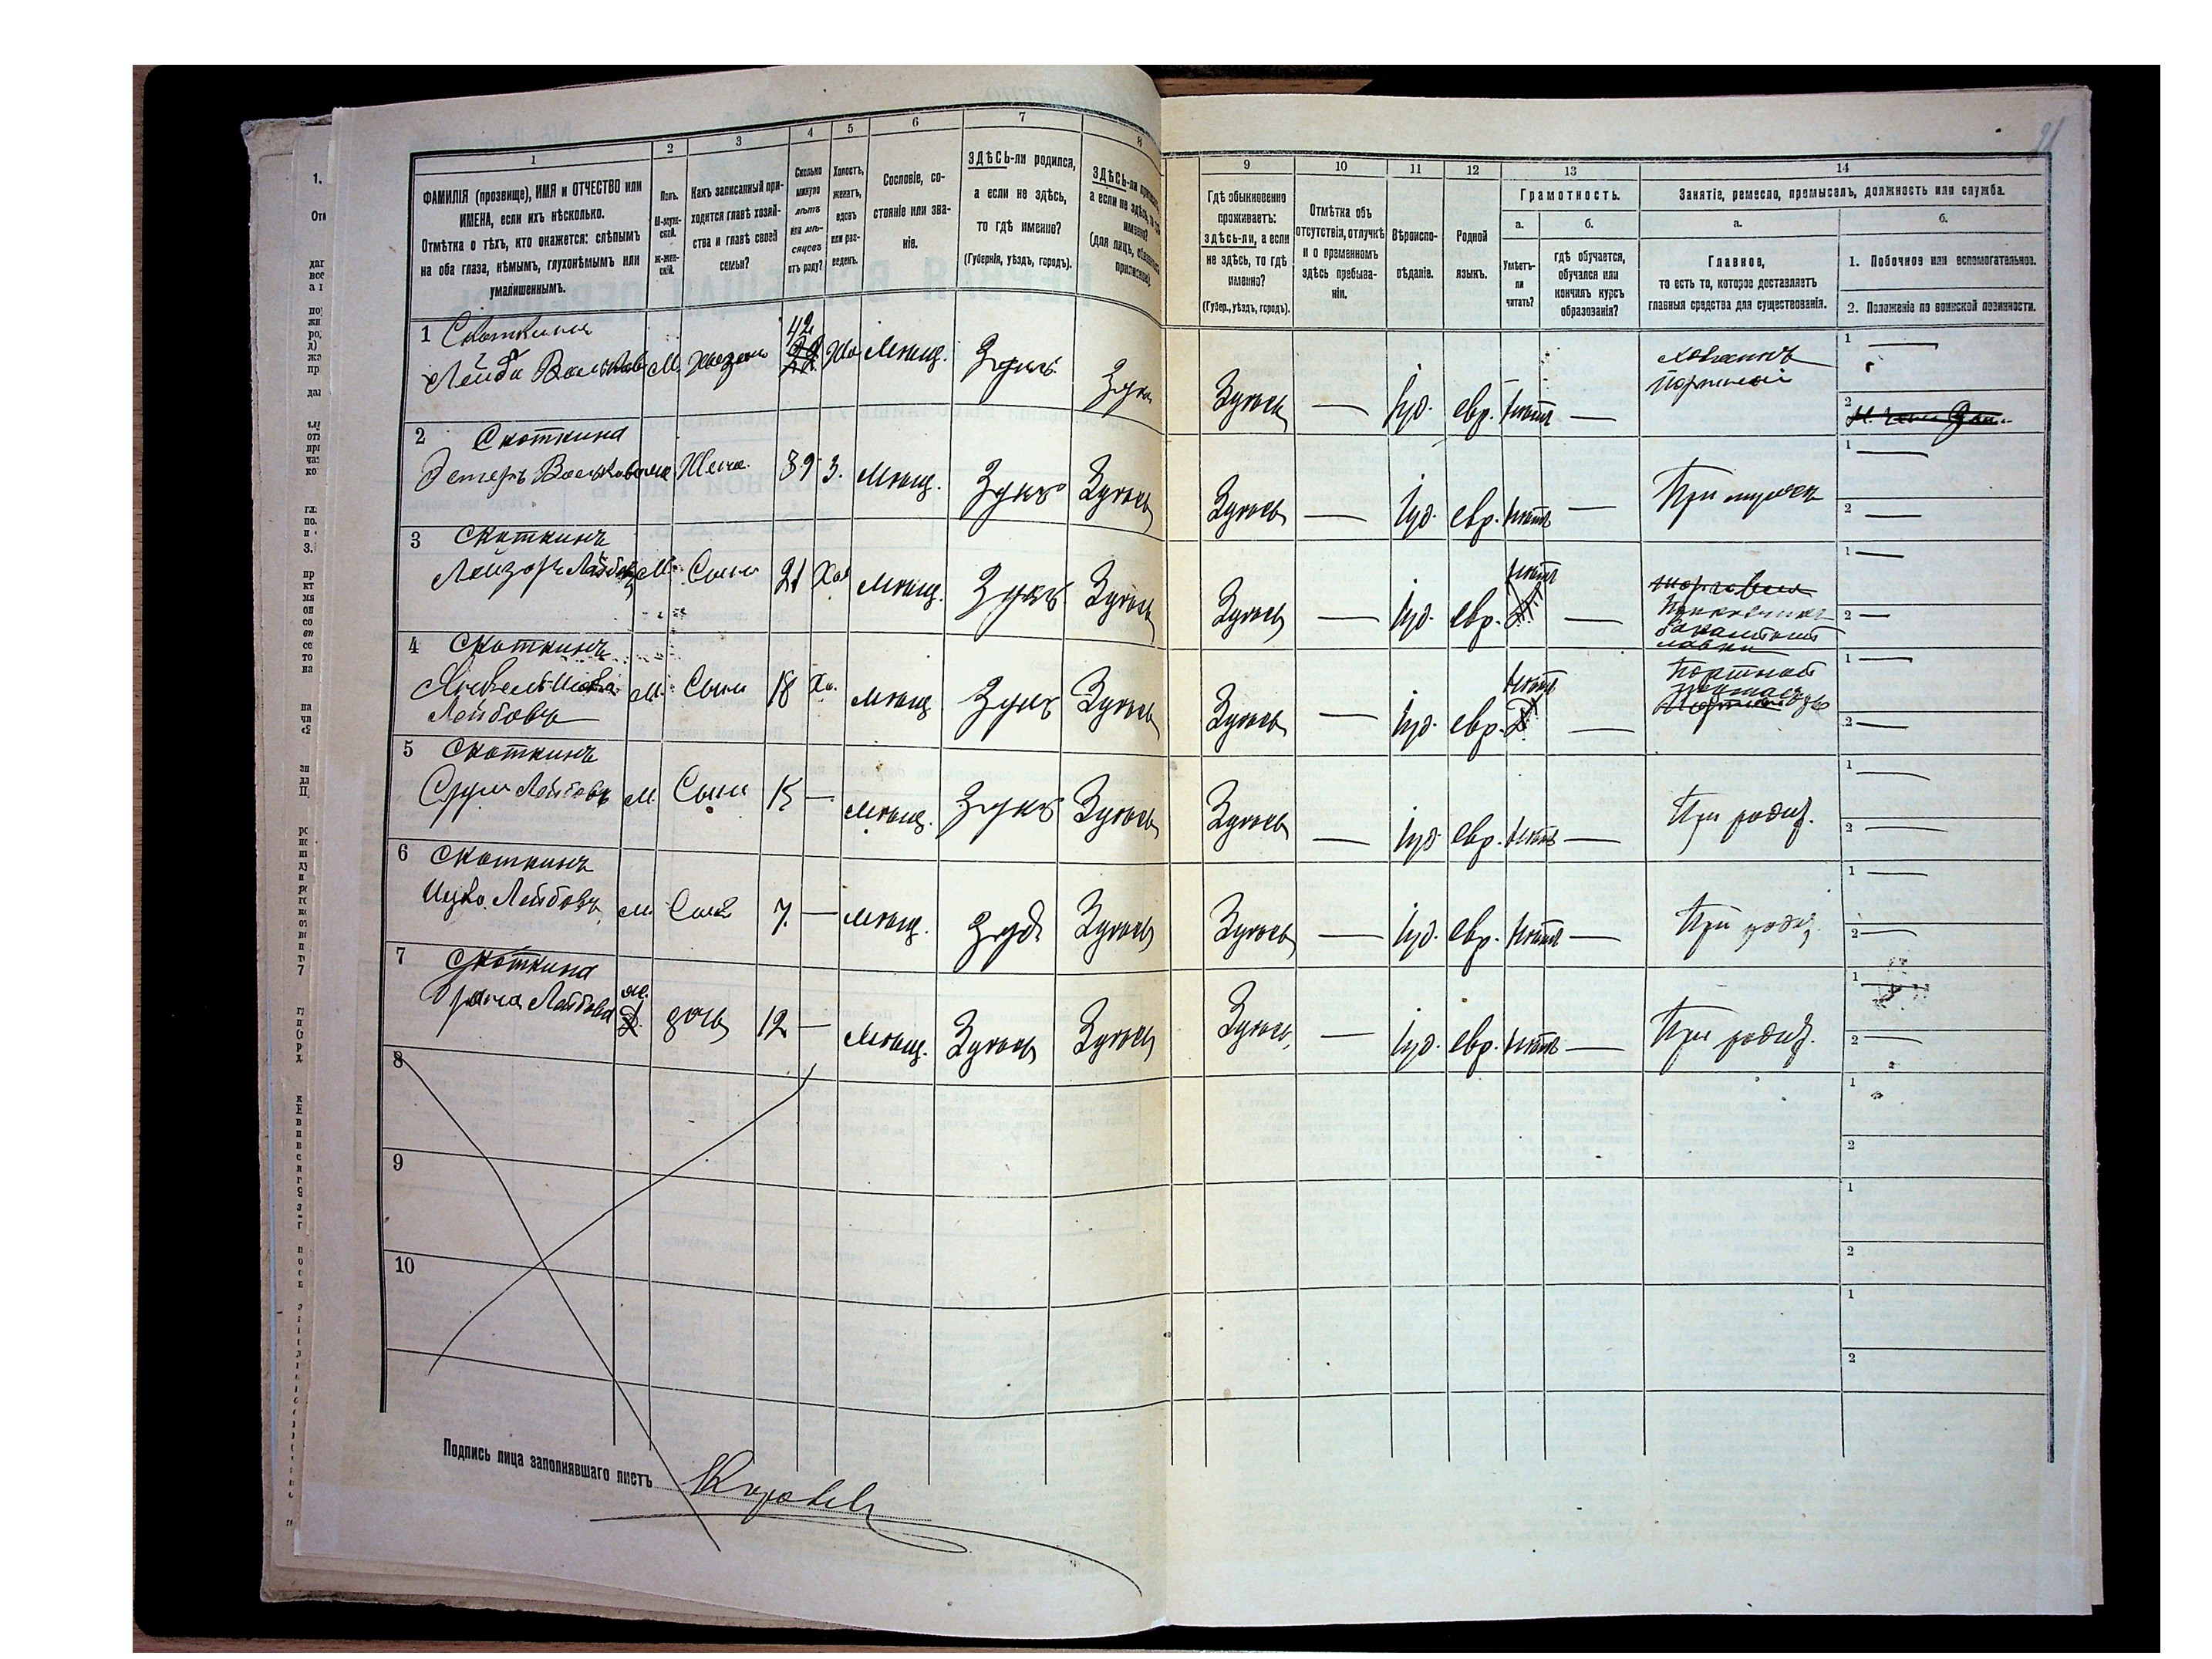 21
1
2
3
4
5
6
7
8
ФАМИЛІЯ (прозвище), ИМЯ и ОТЧЕСТВО или
ИМЕНА, если ихъ нѣсколько.
Отмѣтка о тѣхъ, кто окажется: слѣпымъ
на оба глаза, нѣмымъ, глухонѣмымъ или
умалишеннымъ.
Полъ.
М-муж-
ской.
Ж-жен-
скій.
Какъ записанный при-
ходится главѣ хозяй-
ства и главѣ своей
семьи?
Сколько
минуло
лѣтъ
или мѣ-
сяцевъ
отъ роду?
Холостъ,
женатъ,
вдовъ
или раз-
веденъ.
Сословіе, со-
стояніе или зва-
ніе.
ЗДѢСЬ-ли родился,
а если не здѣсь,
то гдѣ именно?
(Губернія, уѣздъ, городъ).
ЗДѢСЬ-ли
а если не здѣсь,
именно?
(для лицъ,
9
10
11
12
13
14
Гдѣ обыкновенно
проживаетъ:
здѣсь-ли, а если
не здѣсь, то гдѣ
именно?
(Губер., уѣздъ, городъ).
Отмѣтка объ
отсутствіи, отлучкѣ
и о временномъ
здѣсь пребыва-
ніи.
Вѣроиспо-
вѣданіе.
Родной
языкъ.
Грамотность.
а.
Умѣетъ-
ли
читать?
б.
гдѣ обучается,
обучался или
кончилъ курсъ
образованія?
Занятіе, ремесло, промыселъ, должность или служба.
а.
Главное,
то есть то, которое доставляетъ
главныя средства для существованія.
б.
1. Побочное или вспомогательное.
2. Положеніе по воинской повинности.
1 Скоткинъ
42
Лейба М. Хозяинъ Мѣщ. Здѣсь Здѣсь Здѣсь — Іуд. евр. нѣтъ —
хозяинъ
портной
1 —
2
2 Скоткина
Эстеръ Жена 39 З. Мѣщ. Здѣсь Здѣсь Здѣсь — Іуд. евр. нѣтъ — При мужѣ
1 —
2 —
3 Скоткинъ
Лейзоръ Лейбовъ М. Сынъ 21 Хол. Мѣщ. Здѣсь Здѣсь Здѣсь — Іуд. евр. нѣтъ —
бакалейной
лавки
1 —
2 —
4 Скоткинъ
М. Сынъ 18 Хо. Мѣщ. Здѣсь Здѣсь Здѣсь — Іуд. евр. нѣтъ —
Лейбовъ
Портной
1 —
2 —
5 Скоткинъ
Срулъ Лейбовъ М. Сынъ 15 — Мѣщ. Здѣсь Здѣсь Здѣсь — Іуд. евр. нѣтъ — При родит.
1 —
2 —
6 Скоткинъ
Ицко Лейбовъ М. Сынъ 7. — Мѣщ. Здѣсь Здѣсь Здѣсь — Іуд. евр. нѣтъ — При родит.
1 —
2 —
7 Скоткина
Лейбова ж. дочь 12 — Мѣщ. Здѣсь Здѣсь Здѣсь — Іуд. евр. нѣтъ — При родит.
1 —
2 —
8
1
2
9
1
2
10
1
2
Подпись лица заполнявшаго листъ